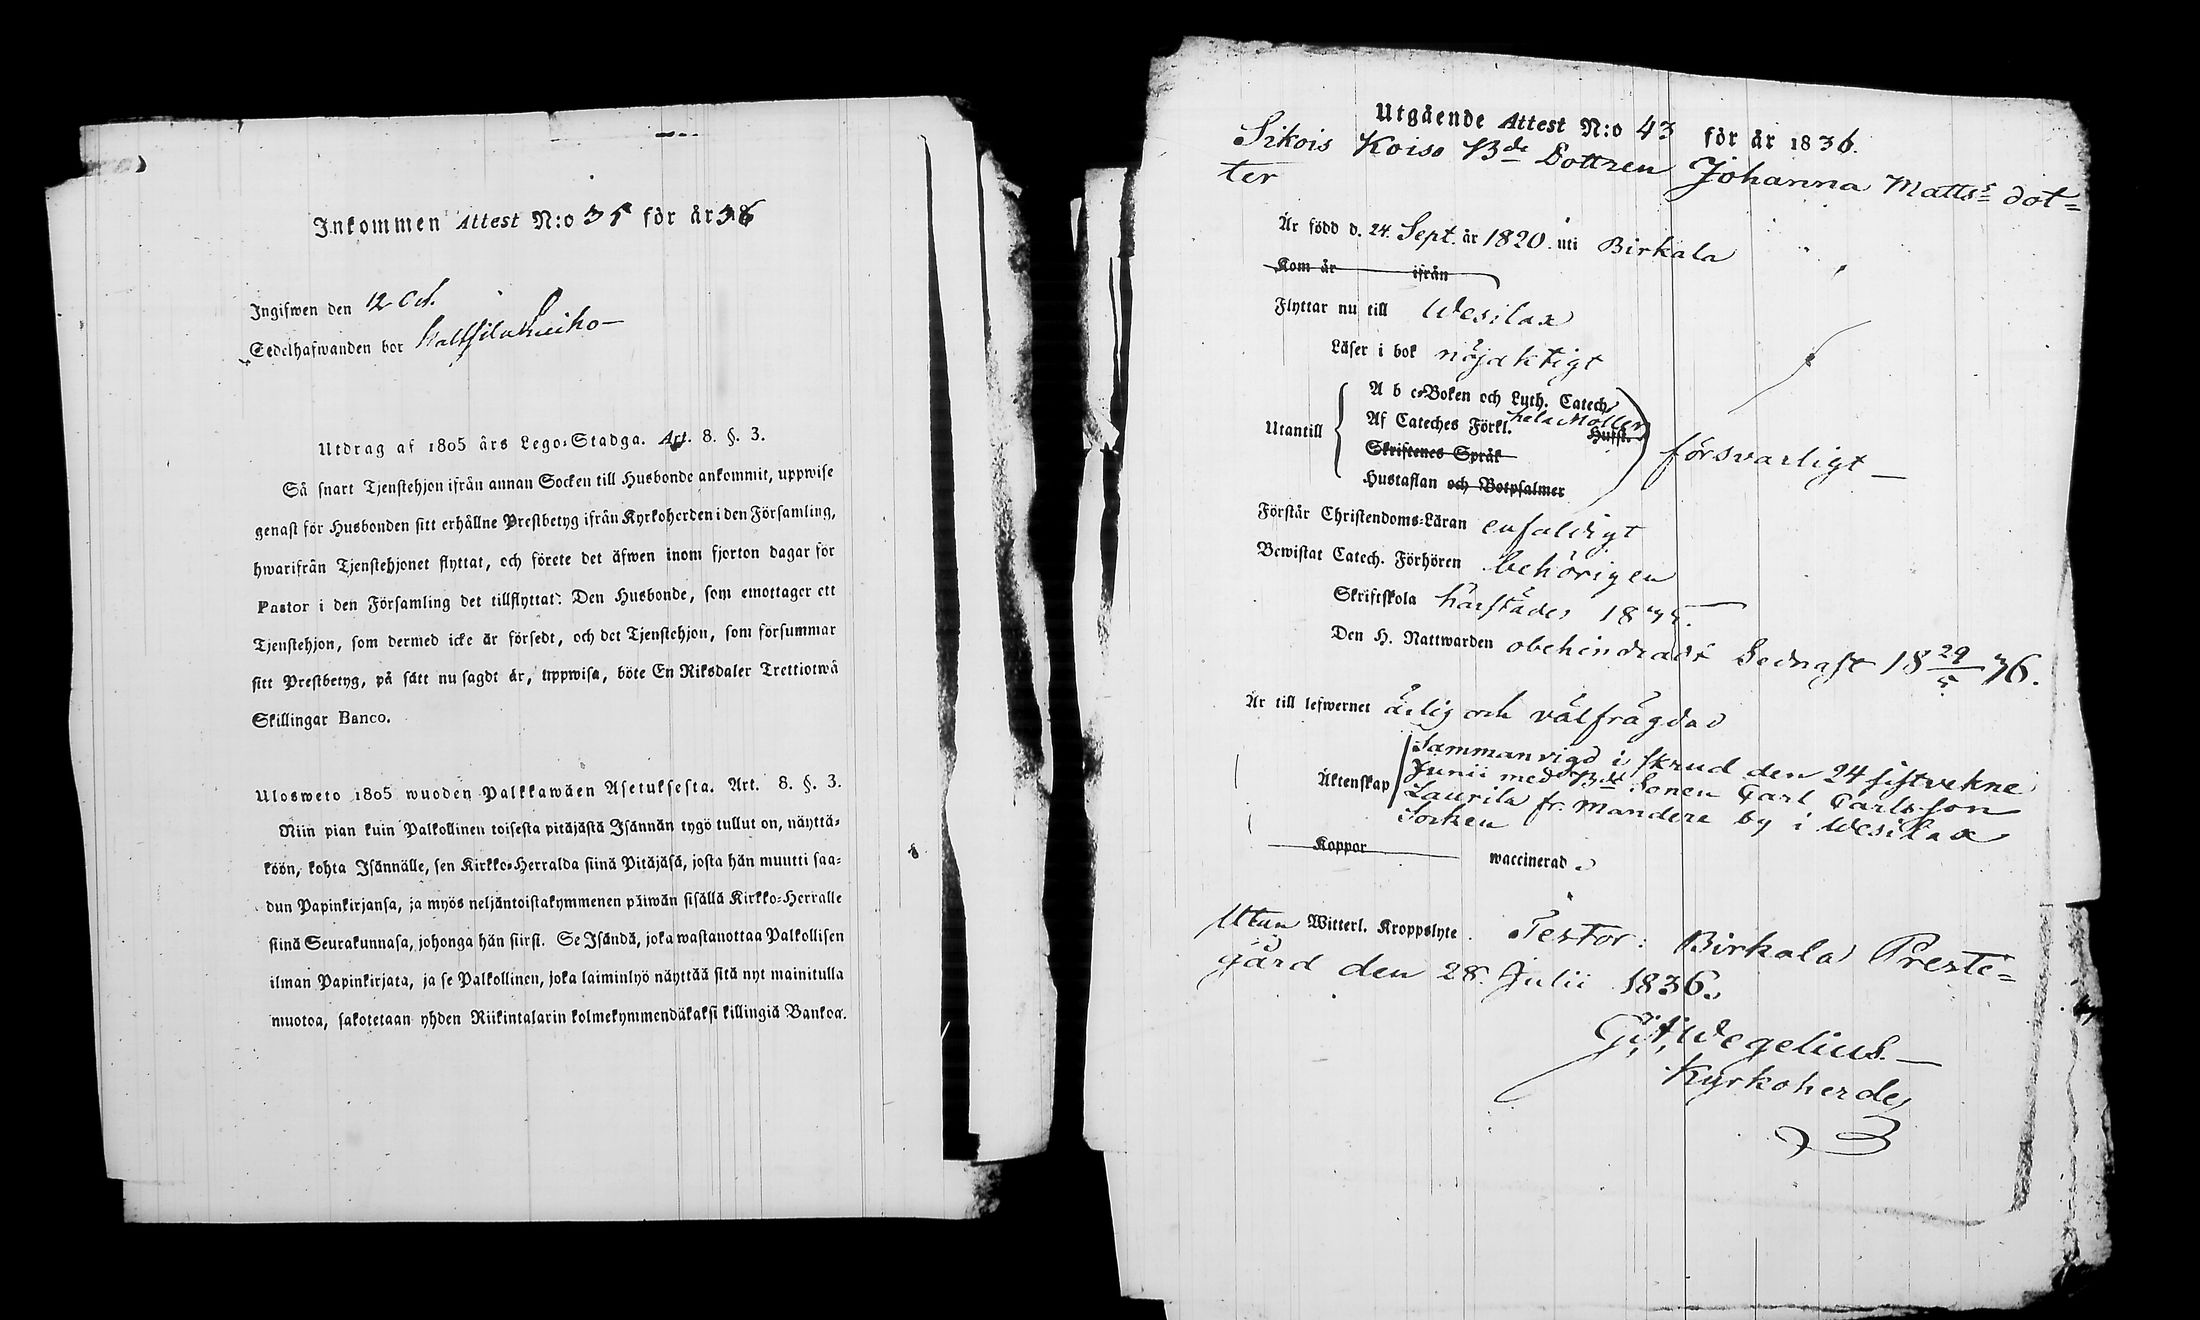 Inkommen Attest N:o 35 för år 36
Ingifwen den 12 Oct.
Sedelhafwanden bor
Utdrag af 1805 års Lego-Stadga. Art. 8. §. 3.
Så snart Tjenstehjon ifrån annan Socken till Husbonde ankommit, uppwise
genast för Husbonden sitt erhållne Prestbetyg ifrån Kyrkoherden i den Församling,
hwarifrån Tjenstehjonet flyttat, och förete det äfwen inom fjorton dagar för
Pastor i den Församling det tillflyttat: Den Husbonde, som emottager ett
Tjenstehjon, som dermed icke är försedt, och det Tjenstehjon, som försummar
sitt Prestbetyg, på sätt nu sagdt är, uppwisa, böte En Riksdaler Trettiotwå
Skillingar Banco.
Ulosweto 1805 wuoden Palkkawäen Asetuksesta. Art. 8. §. 3.
Niin pian kuin Palkollinen toisesta pitäjästä Isännän tygö tullut on, näyttä-
köön, kohta Isännälle, sen Kirkko-Herralda siinä Pitäjäsä, josta hän muutti saa-
dun Papinkirjansa, ja myös neljäntoistakymmenen päiwän sisällä Kirkko-Herralle
siinä Seurakunnasa, johonga hän siirsi. Se Isändä, joka wastanottaa Palkollisen
ilman Papinkirjata, ja se Palkollinen, joka laiminlyö näyttää sitä nyt mainitulla
muotoa, sakotetaan yhden Riikintalarin kolmekymmendäkaksi killingiä Bankoa.
Utgående Attest N:o 43 för år 1836.
Sikois Koiso Bde Dottren Johanna Matts dot=
ter
Är född d. 24. Sept. år 1820. uti Birkala
Kom år ifrån
Flyttar nu till Wesilax
Läser i bok nöjaktigt
Utantill
A b c-Boken och Luth. Catech.
Af Cateches Förkl. hela Möller Husst.
Skriftenes Språk
Hustaflan och Botpsalmer
försvarligt
Förstår Christendoms-Läran enfaldigt
Bewistat Catech. Förhören behörigen
Skriftskola härstädes 1835.
Den H. Nattwarden obehindradt Sednast 18 29/5 36.
Är till lefwernet ärlig och välfrägdad
Äktenskap Sammanvigd i skrud den 24 sistvekne
Junii med Bde Sonen Carl Carlsson
Laurila fr. Mandere by i Wesilax
Socken
Koppor waccinerad
Utan Witterl. Kroppslyte. Testor: Birkala Preste=
gård den 28. Julii 1836.
Wegelius
Kyrkoherde